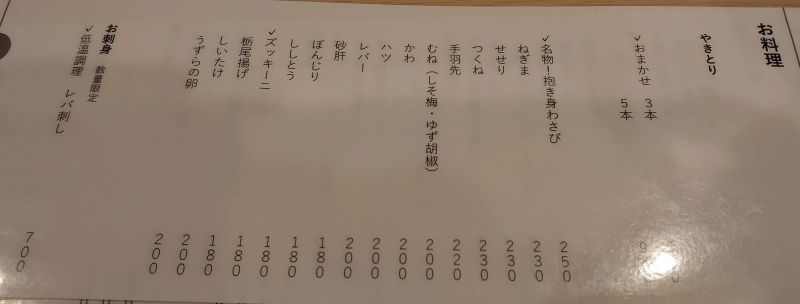 お料理
やきとり
✓おまかせ 3本
5本
✓名物!抱き身わさび 250
ねぎま 230
せせり 230
つくね 230
手羽先 220
むね(しそ梅・ゆず胡椒) 200
かわ 200
ハツ 200
レバー 200
砂肝 180
ぼんじり 180
ししとう 180
✓ズッキーニ 180
栃尾揚げ 180
しいたけ 200
うずらの卵 200
お刺身 数量限定
✓低温調理 レバ刺し 700